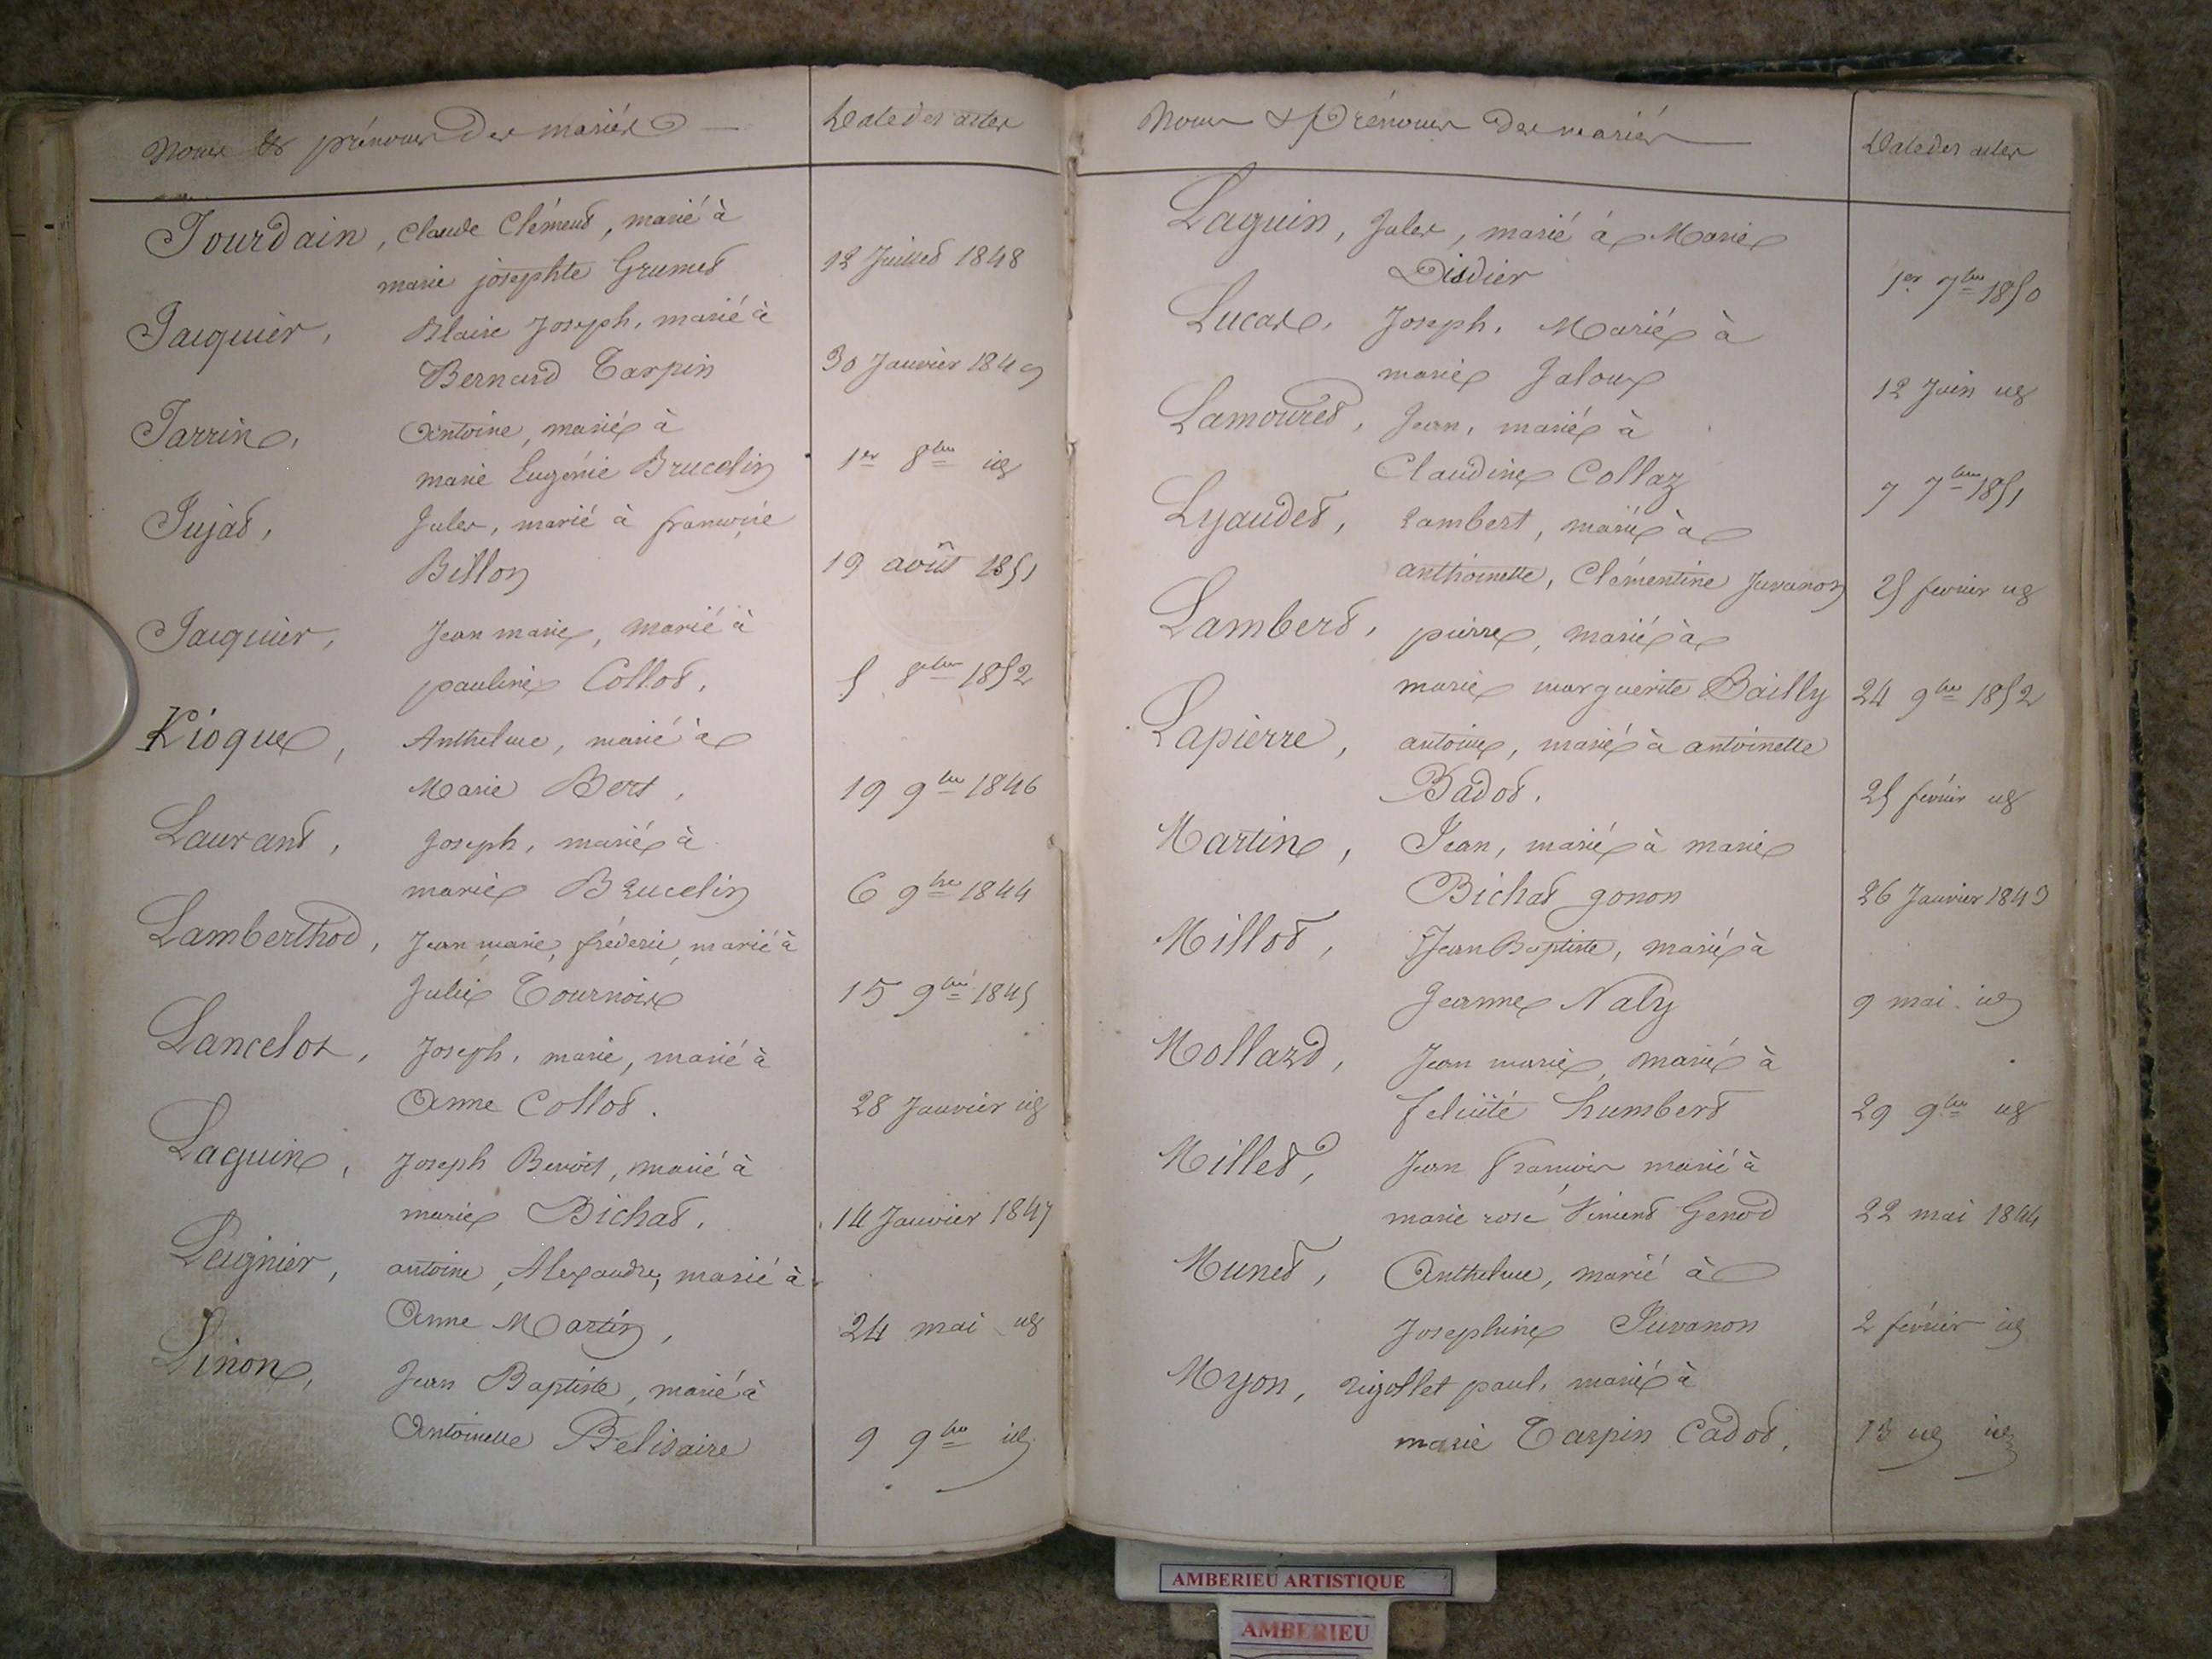 Noms & prénoms des mariés
Date des actes
Jourdain, Claude Clément, marié à
marie josephte Grumet
12 Juillet 1848
Jacquier, Blaise Joseph, marié à
Bernard Tarpin
30 Janvier 1849
Jarrin, Antoine, marié à
marie Eugénie Brucelin
1er 8bre id
Jujat, Jules, marié à françoise
Billon
19 août 1851
Jacquier, Jean marie, marié à
pauline Collot.
5 8bre 1852
Kioque, Anthelme, marié à
Marie Bert,
19 9bre 1846
Laurant, Joseph, marié à
marie Brucelin
6 9bre 1844
Lamberthod, Jean marie, fréderic, marié à
Julie Tournois
15 9bre 1845
Lancelot, Joseph, marie, marié à
Anne Collot.
28 Janvier id
Laguin, Joseph Benoit, marié à
marie Bichat.
14 Janvier 1847
Laignier, antoine, Alexandre, marié à
Anne Martin,
24 mai id
Linon, Jean Baptiste, marié à
Antoinette Belisaire
9 9bre id
Noms & Prénoms des mariés
Date des actes
Laguin, Jules, marié à Marie
Disdier
1er 7bre 1850
Lucas, Joseph, Marié à
marie Jaloux
12 Juin id
Lamouret, Jean, marié à
Claudine Collaz
7 7bre 1851
Lyaudet, Lambert, marié à
anthoinette, Clémentine Juvanon
25 fevrier id
Lambert, pierre, marié à
marie marguerite Bailly
24 9bre 1852
Lapierre, antoine, marié à antoinette
Badot.
25 février id
Martin, Jean, marié à marie
Bichat gonon
26 Janvier 1843
Millot, Jean Baptiste, marié à
Jeanne Naly
9 mai id
Mollard, Jean marie, marié à
felicité humbert
29 9bre id
Millet, Jean françois marié à
marie rose Vincent Genod
22 mai 1844
Munet, Anthelme, marié à
Josephine Juvanon
2 février id
Myon, rigollet paul, marié à
marie Tarpin Cadot.
13 id id
AMBERIEU ARTISTIQUE
AMBERIEU